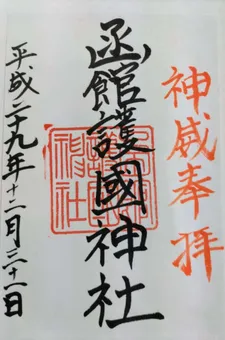 神威奉拝
函館護國神社
平成二十九年十二月三十一日